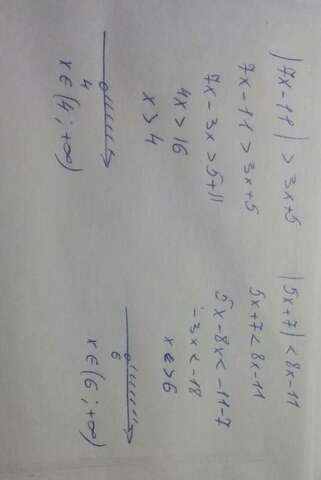 |7x-11| > 3x+5
7x-11 > 3x+5
7x-3x > 5+11
4x > 16
x > 4
4
x∈(4; +∞)
|5x+7| < 8x-11
5x+7 < 8x-11
5x-8x < -11-7
-3x < -18
x > 6
6
x∈(6; +∞)